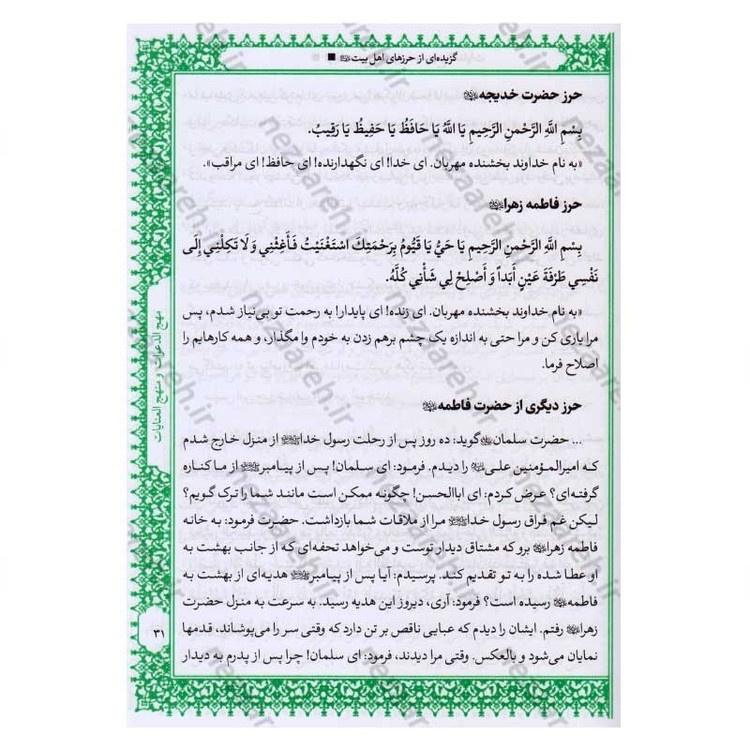 گزیده‌ای از حرزهای اهل بیت
حرز حضرت خدیجه
بِسْمِ اللَّهِ الرَّحْمنِ الرَّحِيمِ يَا اللَّهُ يَا حَافِظُ يَا حَفِيظُ يَا رَقِيبُ.
«به نام خداوند بخشنده مهربان. ای خدا! ای نگهدارنده! ای حافظ! ای مراقب».
حرز فاطمه زهرا
بِسْمِ اللَّهِ الرَّحْمنِ الرَّحِيمِ يَا حَيُّ يَا قَيُّومُ بِرَحْمَتِكَ اسْتَغْنَيْتُ فَأَغْنِنِي وَ لَا تَكِلْنِي إِلَى
نَفْسِي طَرْفَةَ عَيْنٍ أَبَداً وَ أَصْلِحْ لِي شَأْنِي كُلَّهُ.
«به نام خداوند بخشنده مهربان. ای زنده! ای پایدار! به رحمت تو بی‌نیاز شدم، پس
مرا یاری کن و مرا حتی به اندازه یک چشم برهم زدن به خودم وا مگذار، و همه کارهایم را
اصلاح فرما.
حرز دیگری از حضرت فاطمه
... حضرت سلمان گوید: ده روز پس از رحلت رسول خدا از منزل خارج شدم
که امیرالمؤمنین علی را دیدم. فرمود: ای سلمان! پس از پیامبر از ما کناره
گرفته‌ای؟ عرض کردم: ای اباالحسن! چگونه ممکن است مانند شما را ترک گویم؟
لیکن غم فراق رسول خدا مرا از ملاقات شما بازداشت. حضرت فرمود: به خانه
فاطمه زهرا برو که مشتاق دیدار توست و می‌خواهد تحفه‌ای که از جانب بهشت به
او عطا شده را به تو تقدیم کند. پرسیدم: آیا پس از پیامبر هدیه‌ای از بهشت به
فاطمه رسیده است؟ فرمود: آری، دیروز این هدیه رسید. به سرعت به منزل حضرت
زهرا رفتم. ایشان را دیدم که عبایی ناقص بر تن دارد که وقتی سر را می‌پوشاند، قدمها
نمایان می‌شود و بالعکس. وقتی مرا دیدند، فرمود: ای سلمان! چرا پس از پدرم به دیدار
مهج الدعوات و منهج العنایات
۳۱
nezaareh.ir